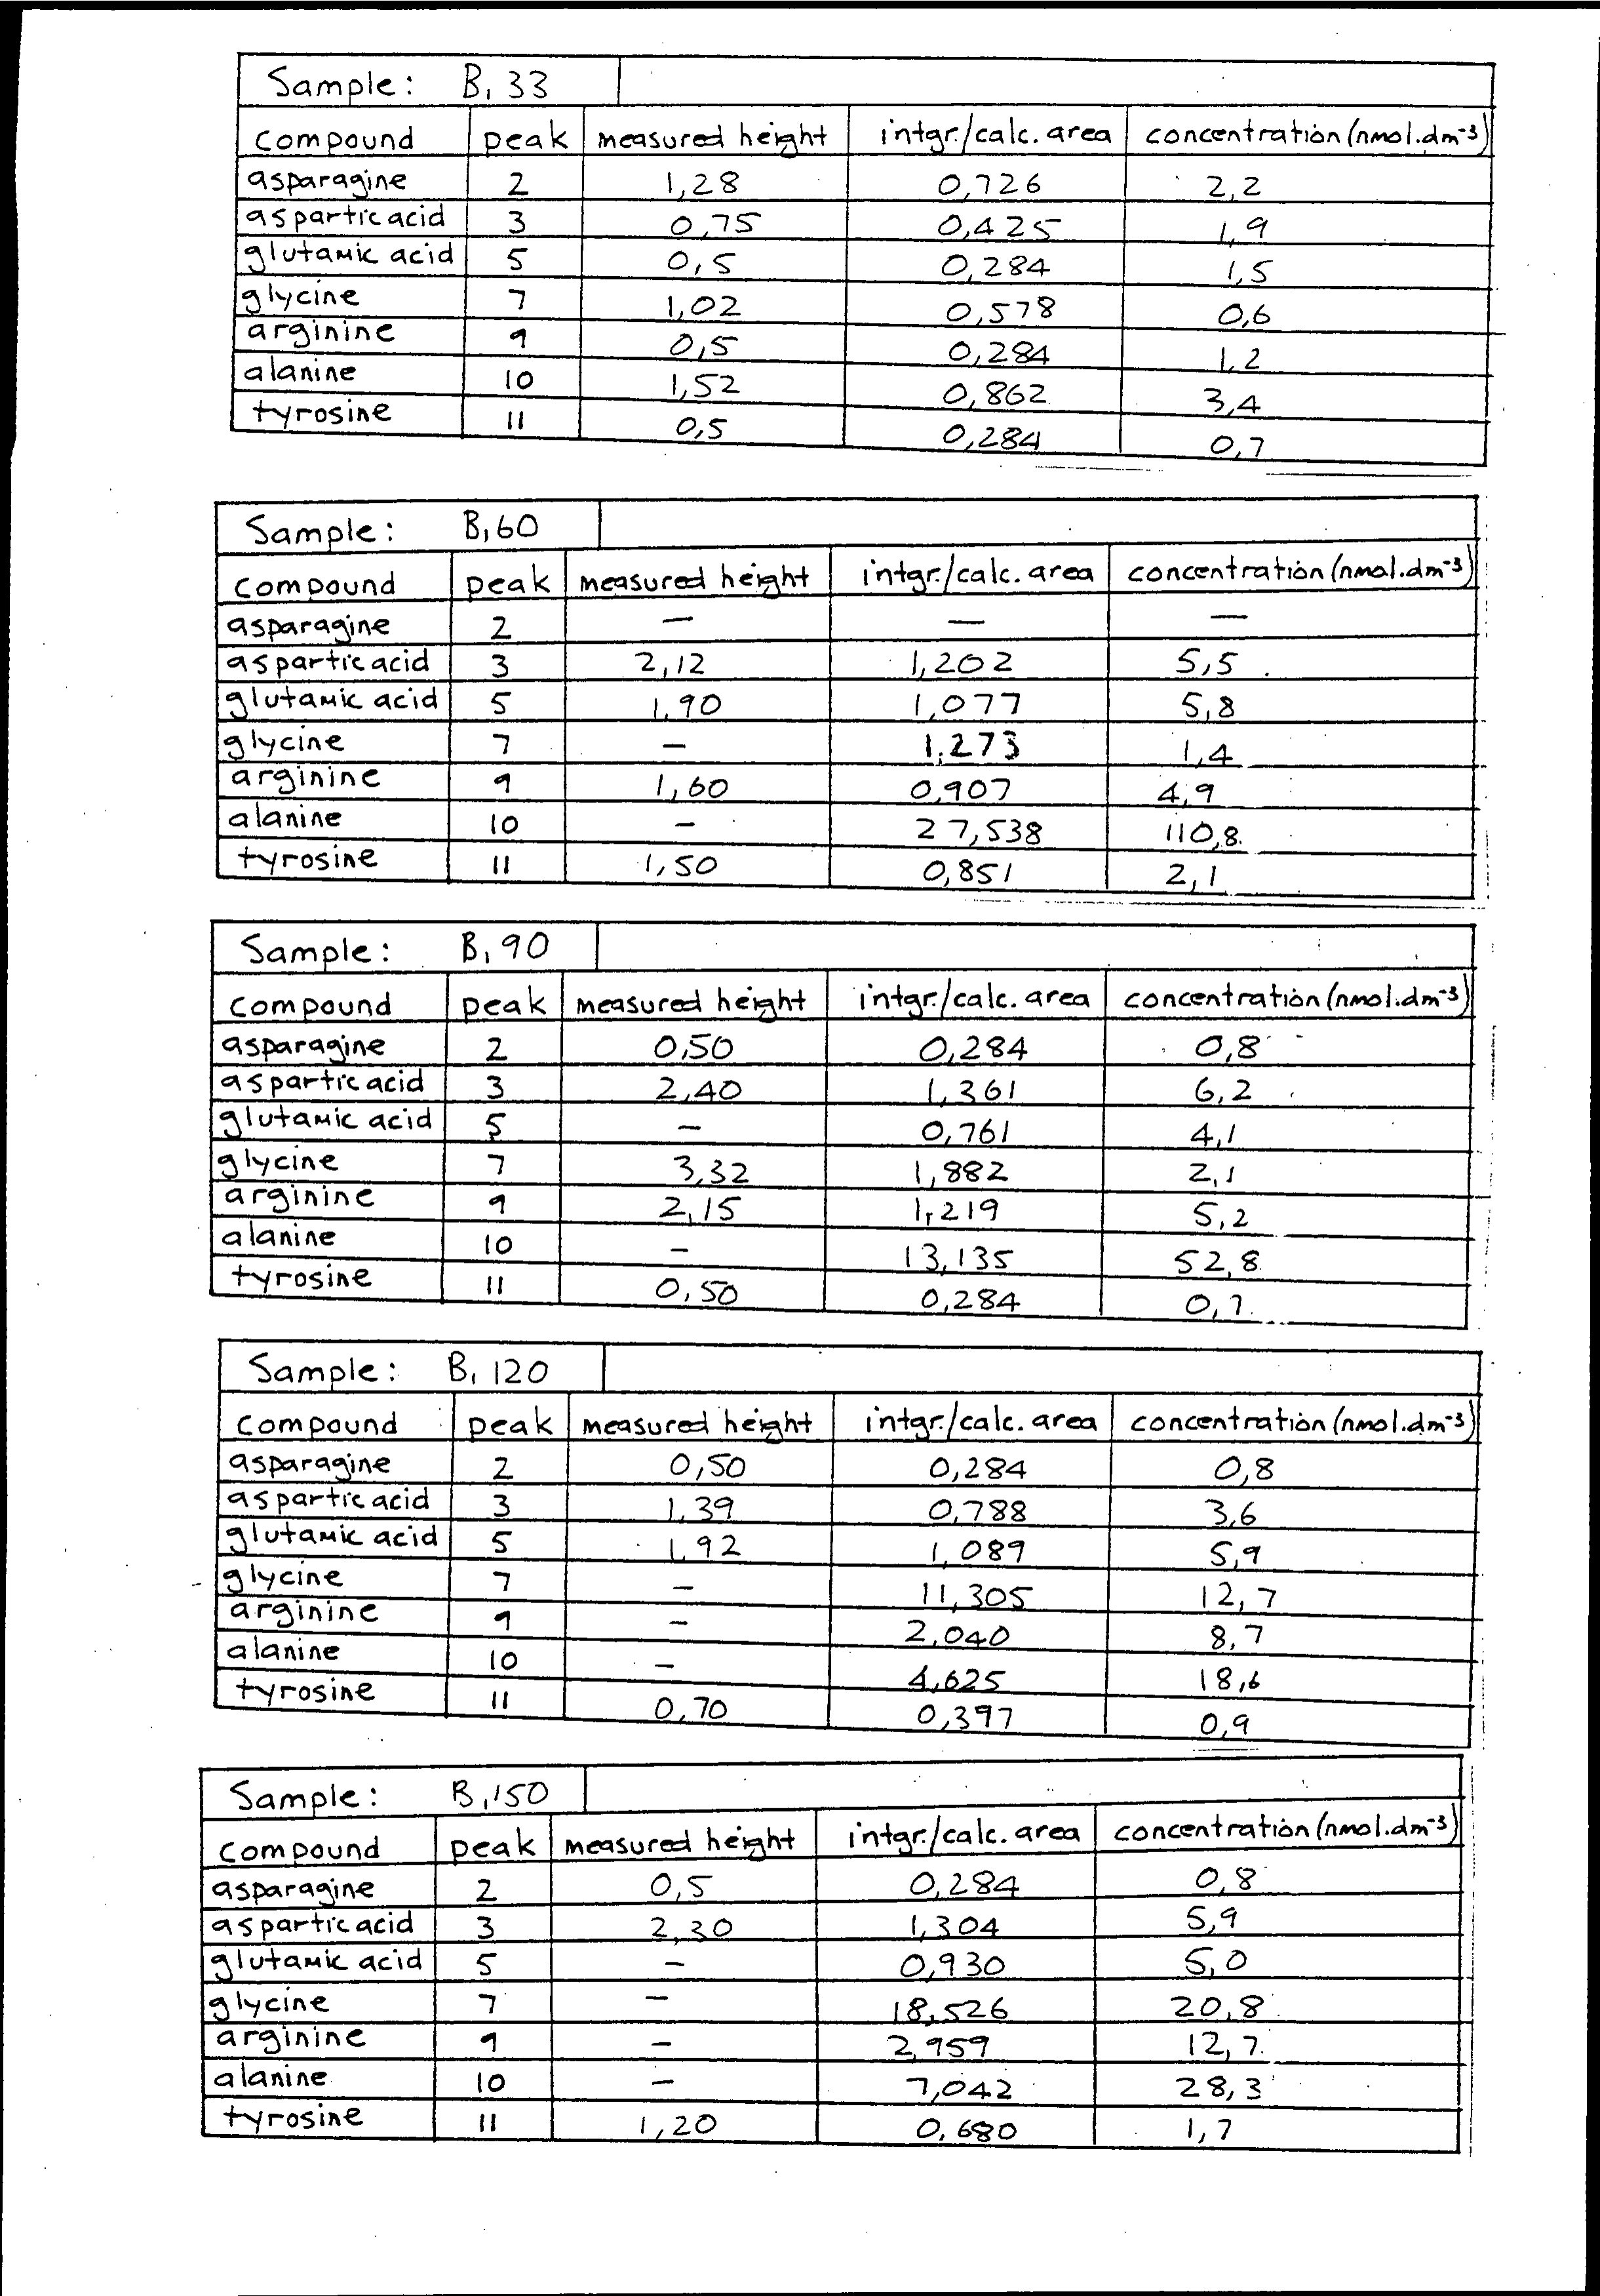 Sample: B, 33
compound peak measured height intgr./calc. area concentration (nmol.dm⁻³)
asparagine 2 1,28 0,726 2,2
aspartic acid 3 0,75 0,425 1,9
glutamic acid 5 0,5 0,284 1,5
glycine 7 1,02 0,578 0,6
arginine 9 0,5 0,284 1,2
alanine 10 1,52 0,862 3,4
tyrosine 11 0,5 0,284 0,7
Sample: B, 60
compound peak measured height intgr./calc. area concentration (nmol.dm⁻³)
asparagine 2 — — —
aspartic acid 3 2,12 1,202 5,5
glutamic acid 5 1,90 1,077 5,8
glycine 7 – 1.273 1,4
arginine 9 1,60 0,907 4,9
alanine 10 – 27,538 110,8
tyrosine 11 1,50 0,851 2,1
Sample: B, 90
compound peak measured height intgr./calc. area concentration (nmol.dm⁻³)
asparagine 2 0,50 0,284 0,8
aspartic acid 3 2,40 1,361 6,2
glutamic acid 5 – 0,761 4,1
glycine 7 3,32 1,882 2,1
arginine 9 2,15 1,219 5,2
alanine 10 – 13,135 52,8
tyrosine 11 0,50 0,284 0,7
Sample: B, 120
compound peak measured height intgr./calc. area concentration (nmol.dm⁻³)
asparagine 2 0,50 0,284 0,8
aspartic acid 3 1,39 0,788 3,6
glutamic acid 5 1,92 1,089 5,9
glycine 7 – 11,305 12,7
arginine 9 – 2,040 8,7
alanine 10 – 4,625 18,6
tyrosine 11 0,70 0,397 0,9
Sample: B, 150
compound peak measured height intgr./calc. area concentration (nmol.dm⁻³)
asparagine 2 0,5 0,284 0,8
aspartic acid 3 2,30 1,304 5,9
glutamic acid 5 – 0,930 5,0
glycine 7 – 18,526 20,8
arginine 9 – 2,959 12,7
alanine 10 – 7,042 28,3
tyrosine 11 1,20 0,680 1,7